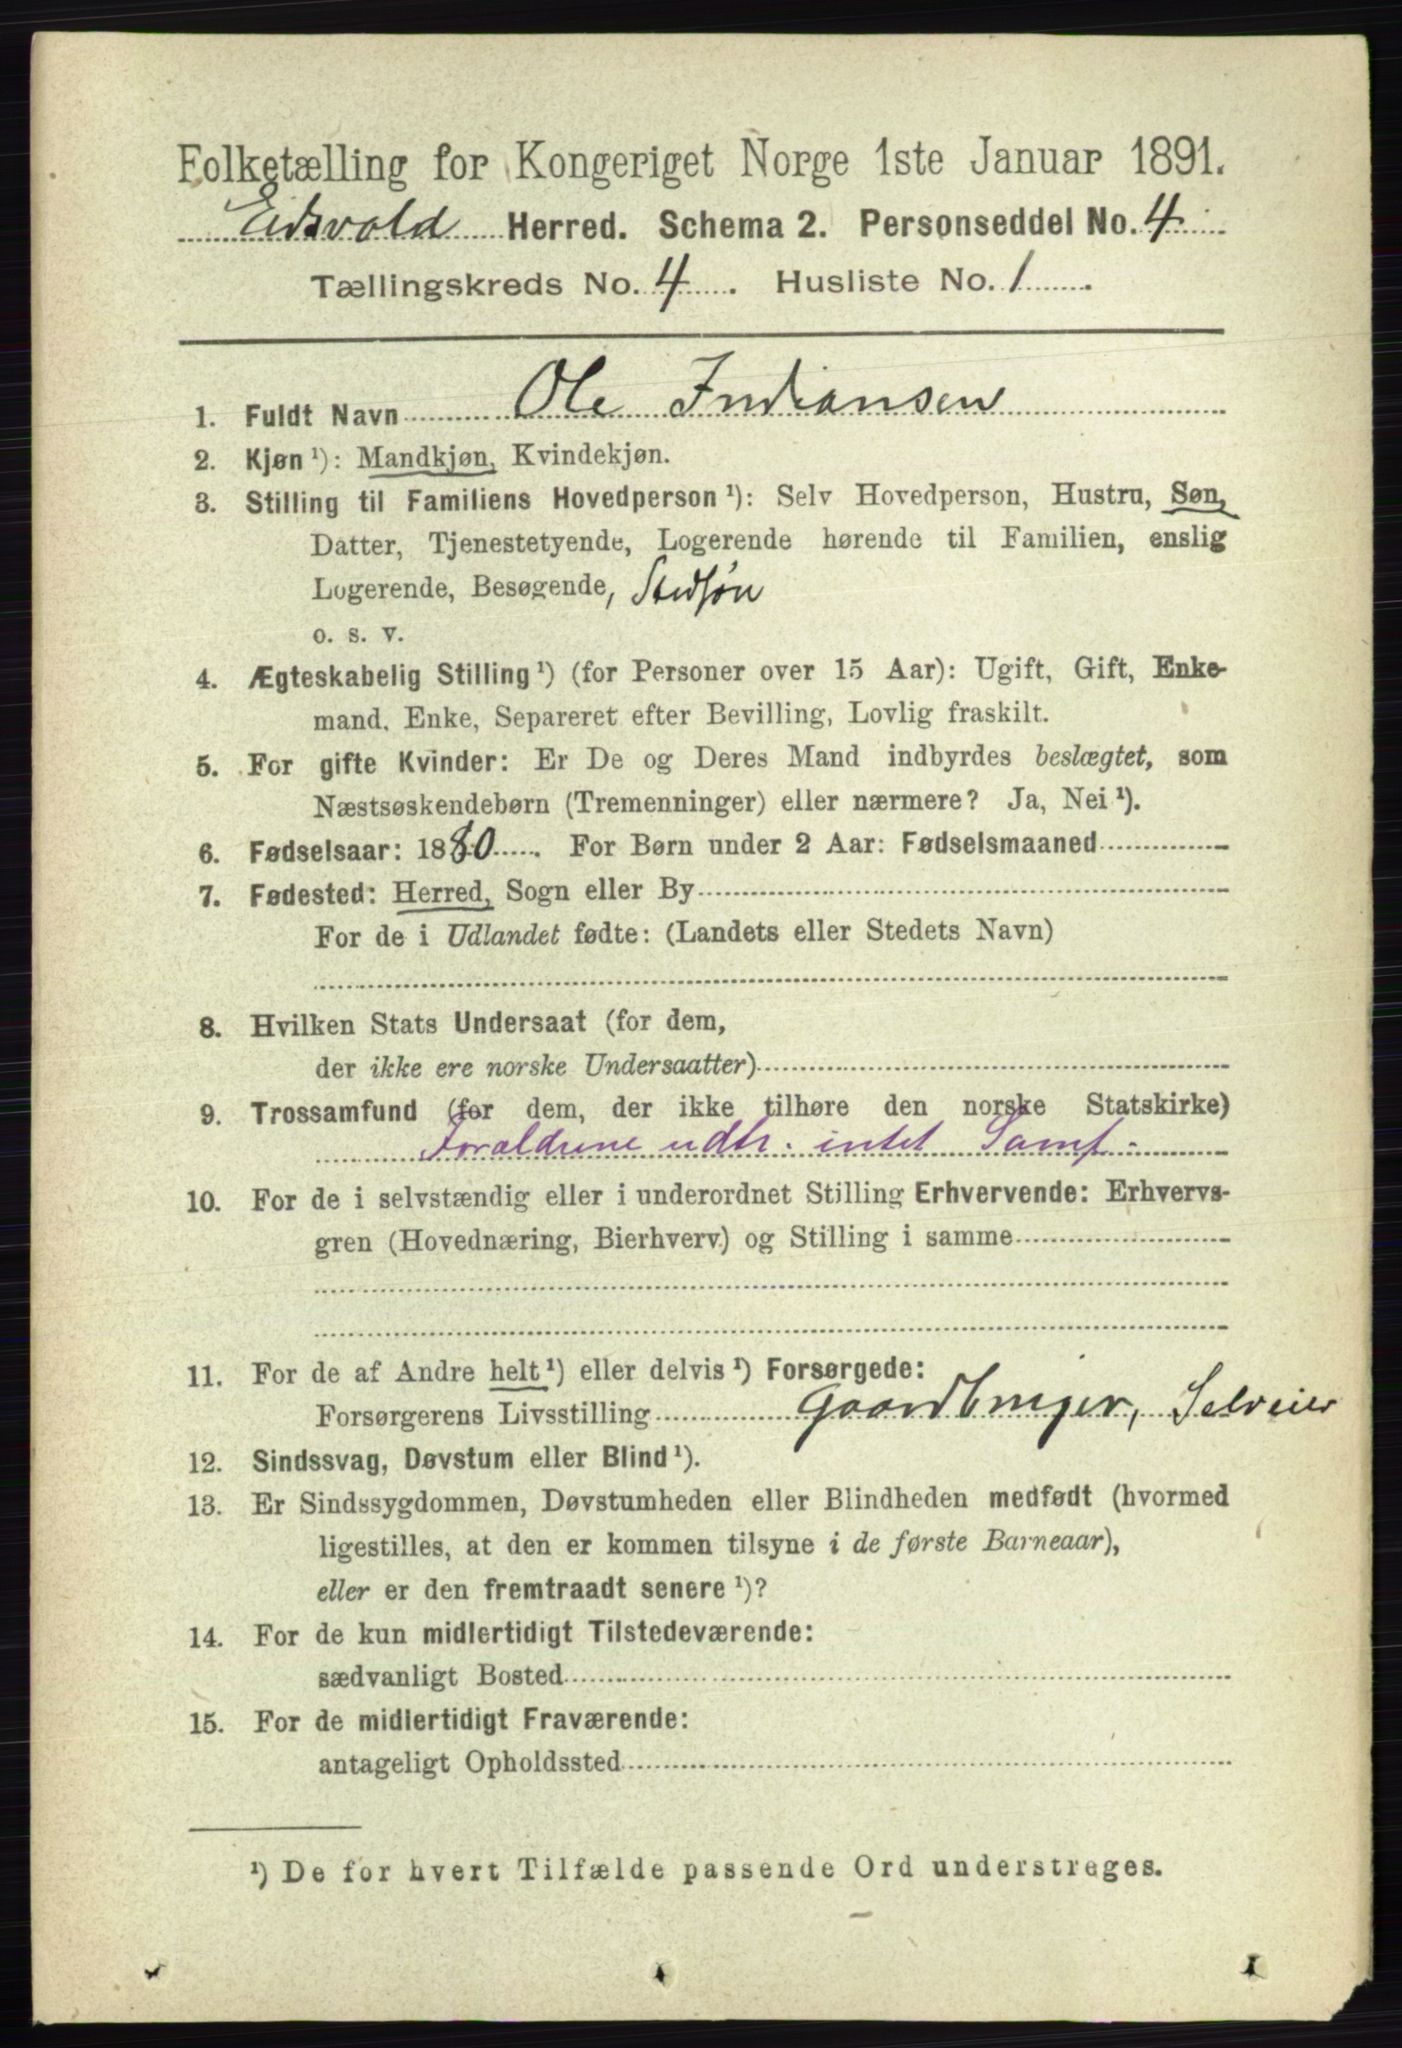 Folketælling for Kongeriget Norge 1ste Januar 1891.
Eidsvold Herred. Schema 2. Personseddel No. 4
Tællingskreds No. 4. Husliste No. 1.
1. Fuldt Navn Ole Indiansen
2. Kjøn ¹): Mandkjøn, Kvindekjøn.
3. Stilling til Familiens Hovedperson ¹): Selv Hovedperson, Hustru, Søn,
Datter, Tjenestetyende, Logerende hørende til Familien, enslig
Logerende, Besøgende, Stedsøn
o. s. v.
4. Ægteskabelig Stilling ¹) (for Personer over 15 Aar): Ugift, Gift, Enke-
mand, Enke, Separeret efter Bevilling, Lovlig fraskilt.
5. For gifte Kvinder: Er De og Deres Mand indbyrdes beslægtet, som
Næstsøskendebørn (Tremenninger) eller nærmere? Ja, Nei ¹).
6. Fødselsaar: 1880. For Børn under 2 Aar: Fødselsmaaned
7. Fødested: Herred, Sogn eller By
For de i Udlandet fødte: (Landets eller Stedets Navn)
8. Hvilken Stats Undersaat (for dem,
der ikke ere norske Undersaatter)
9. Trossamfund (for dem, der ikke tilhøre den norske Statskirke)
Forældrene udtr. intet Samf.
10. For de i selvstændig eller i underordnet Stilling Erhvervende: Erhvervs-
gren (Hovednæring, Bierhverv) og Stilling i samme
11. For de af Andre helt ¹) eller delvis ¹) Forsørgede:
Forsørgerens Livsstilling Gaardbruger, Selveier
12. Sindssvag, Døvstum eller Blind ¹).
13. Er Sindssygdommen, Døvstumheden eller Blindheden medfødt (hvormed
ligestilles, at den er kommen tilsyne i de første Barneaar),
eller er den fremtraadt senere ¹)?
14. For de kun midlertidigt Tilstedeværende:
sædvanligt Bosted
15. For de midlertidigt Fraværende:
antageligt Opholdssted
¹) De for hvert Tilfælde passende Ord understreges.